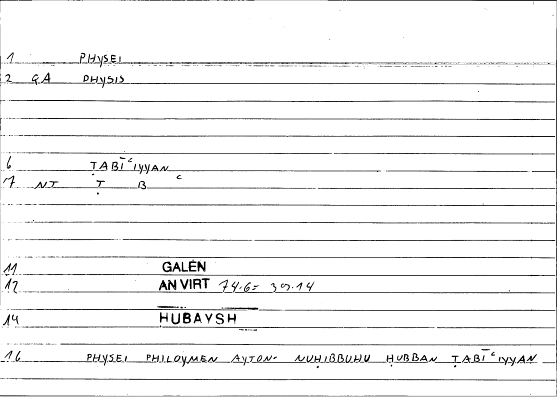 1 PHYSEI
2 GA PHYSIS
6 ṬABĪʿIYYAN
7 NT Ṭ B ʿ
11 GALEN
12 AN VIRT 74.6 = 39.14
14 HUBAYSH
16 PHYSEI PHILOYMEN AYTON- NUḤIBBUHU ḤUBBAN ṬABĪʿIYYAN